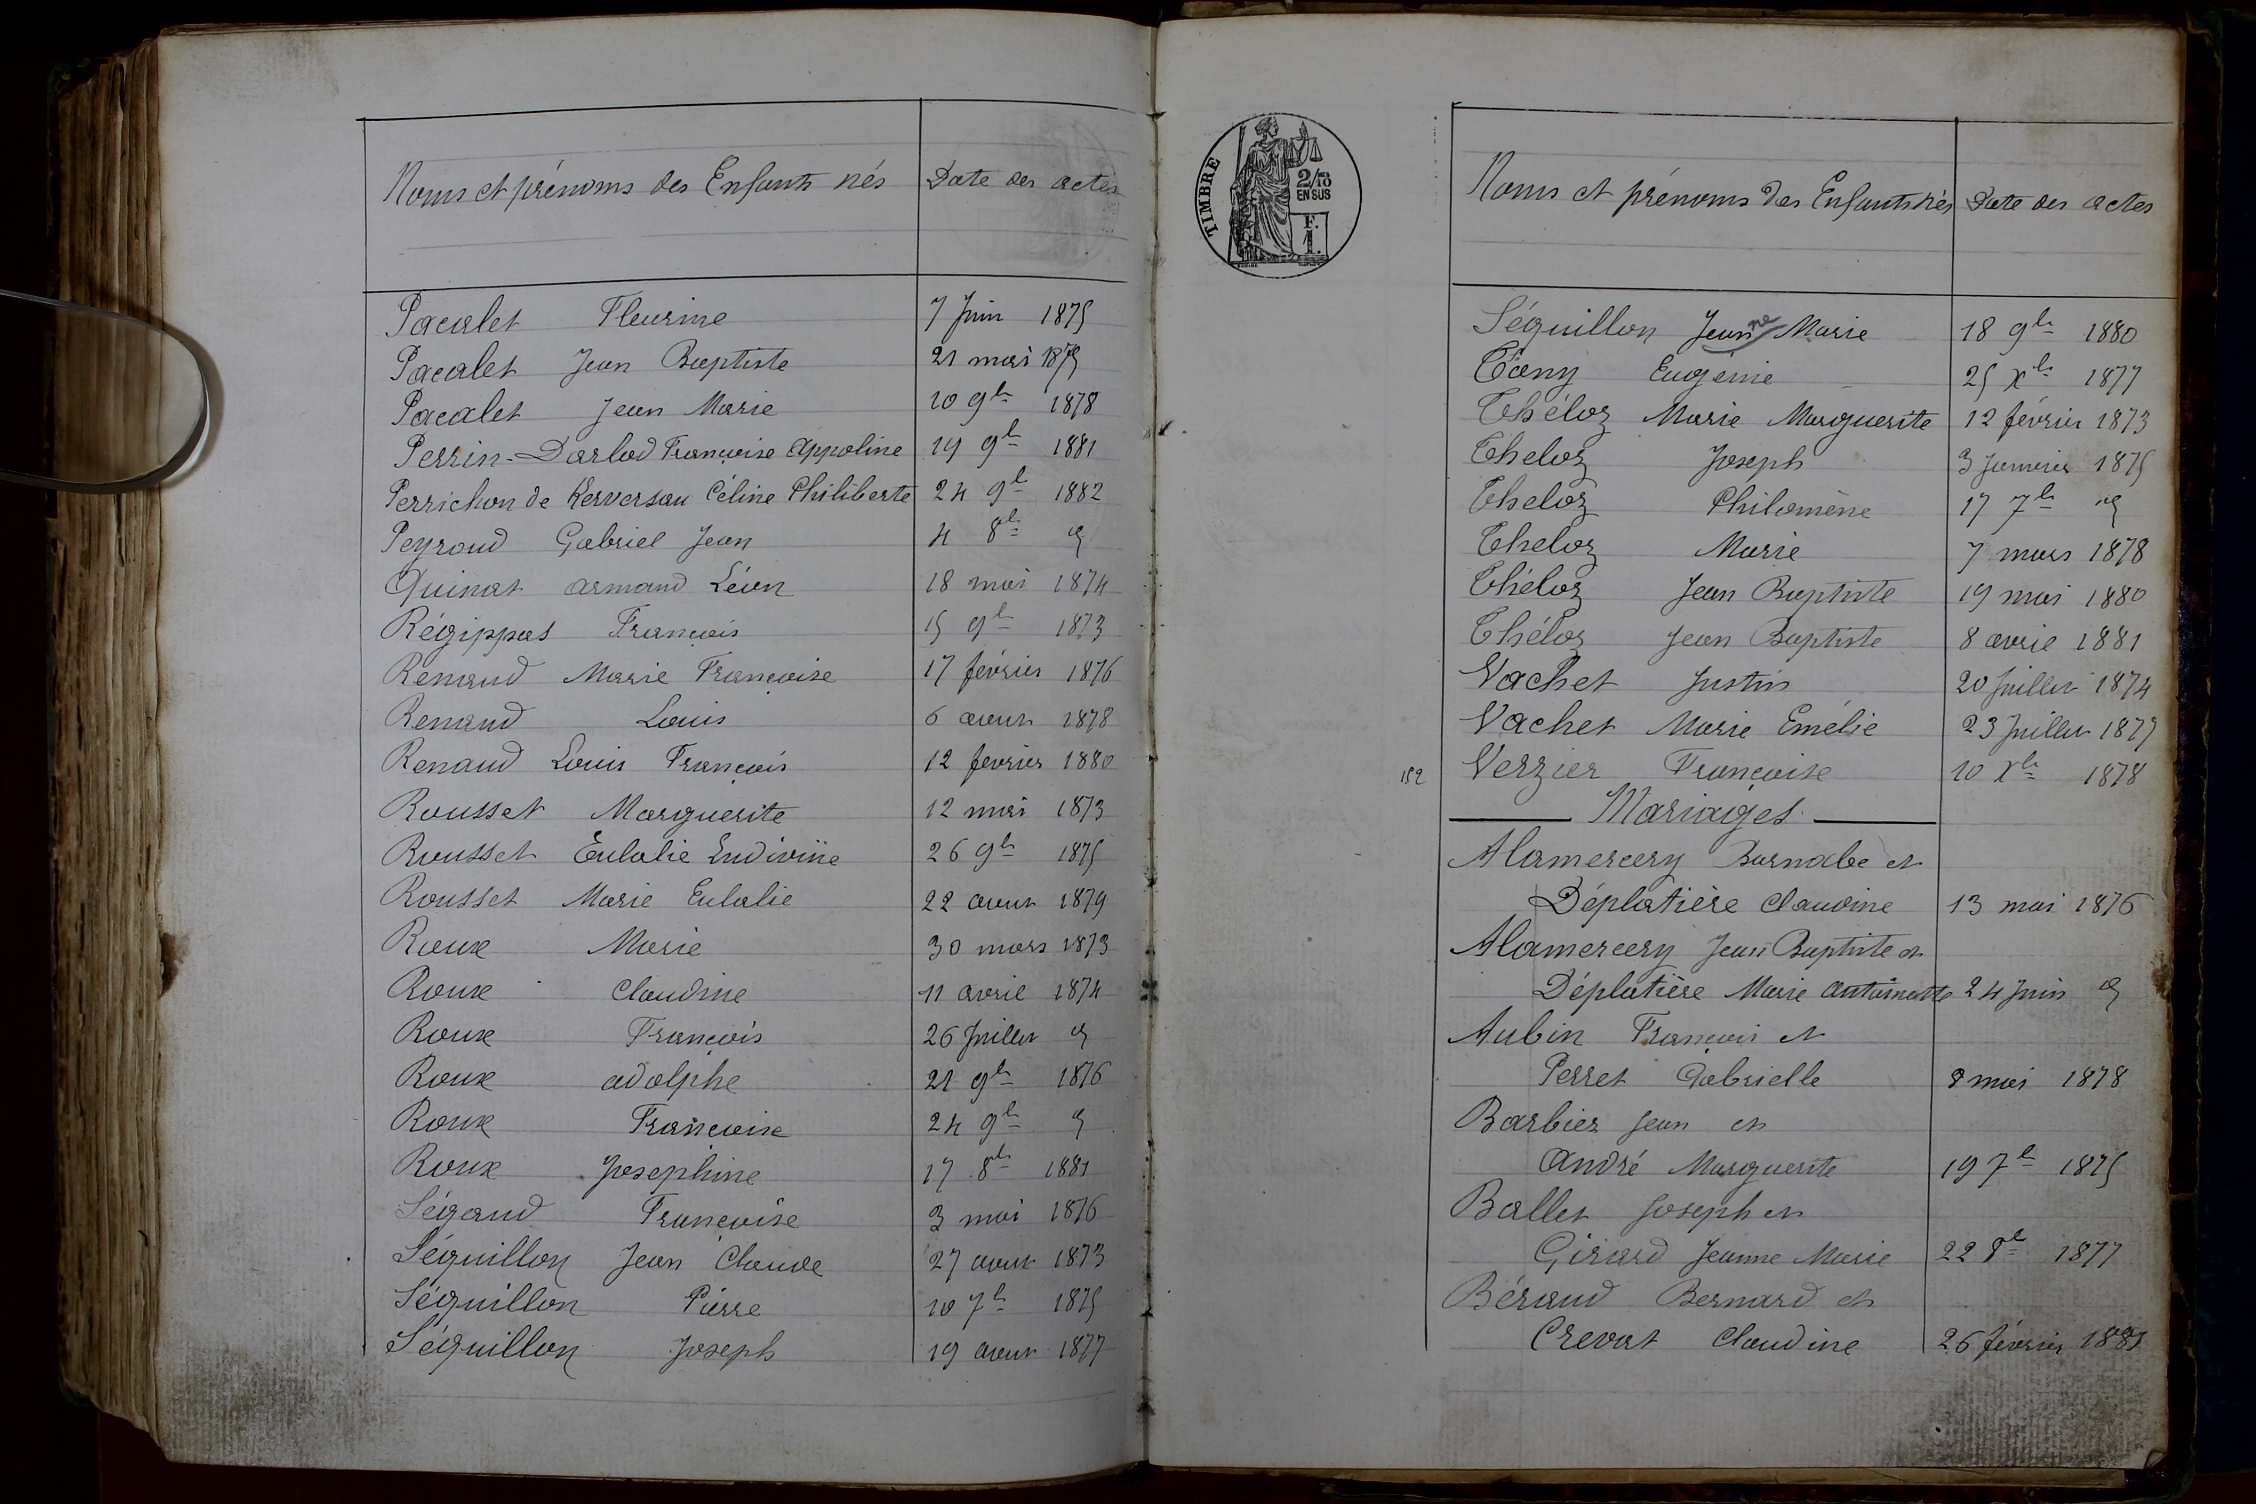 Noms et prénoms des Enfants nés Date des actes
Pacalet Fleurine 7 Juin 1875
Pacalet Jean Baptiste 21 mai 1879
Pacalet Jean Marie 10 9bre 1878
Perrin-Darlod Françoise Appoline 19 9bre 1881
Perrichon de Kerversau Céline Philiberte 24 9bre 1882
Peyroud Gabriel Jean 4 8bre d
Quinat Armand Léon 18 mai 1874
Régippas François 15 9bre 1873
Renaud Marie Françoise 17 février 1876
Renaud Louis 6 aout 1878
Renaud Louis François 12 février 1880
Rousset Marguerite 12 mai 1873
Rousset Eulalie 26 9bre 1875
Rousset Marie Eulalie 22 aout 1879
Roux Marie 30 mars 1873
Roux Claudine 11 avril 1874
Roux François 26 Juillet d
Roux adolphe 21 9bre 1876
Roux Françoise 24 9bre d
Roux Josephine 17 8bre 1881
Ségaud Françoise 3 mai 1876
Séguillon Jean Claude 27 aout 1873
Séguillon Pierre 10 7bre 1875
Séguillon Joseph 19 aout 1877
TIMBRE
2/10
EN SUS
F.
1.
Noms et prénoms des Enfants nés Date des actes
Séguillon Jeanne Marie 18 9bre 1880
Tany Eugénie 25 Xbre 1877
Théloz Marie Marguerite 12 février 1873
Theloz Joseph 3 Janvier 1875
Theloz Philomène 17 7bre d
Theloz Marie 7 mars 1878
Théloz Jean Baptiste 19 mai 1880
Théloz Jean Baptiste 8 avril 1881
Vachet Justin 20 Juillet 1874
Vachet Marie Emélie 23 Juillet 1877
152 Verzier Françoise 10 Xbre 1878
Mariages
Alamercery Barnabe et
Déplatière Claudine 13 mai 1876
Alamercery Jean Baptiste et
Déplatière Marie Antoinette 24 Juin d
Aubin François et
Perret Gabrielle 8 mai 1878
Barbier Jean et
André Marguerite 19 7bre 1875
Ballet Joseph et
Girard Jeanne Marie 22 8bre 1877
Béraud Bernard et
Crevat Claudine 26 février 1881